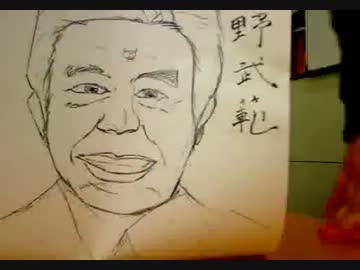 野武範